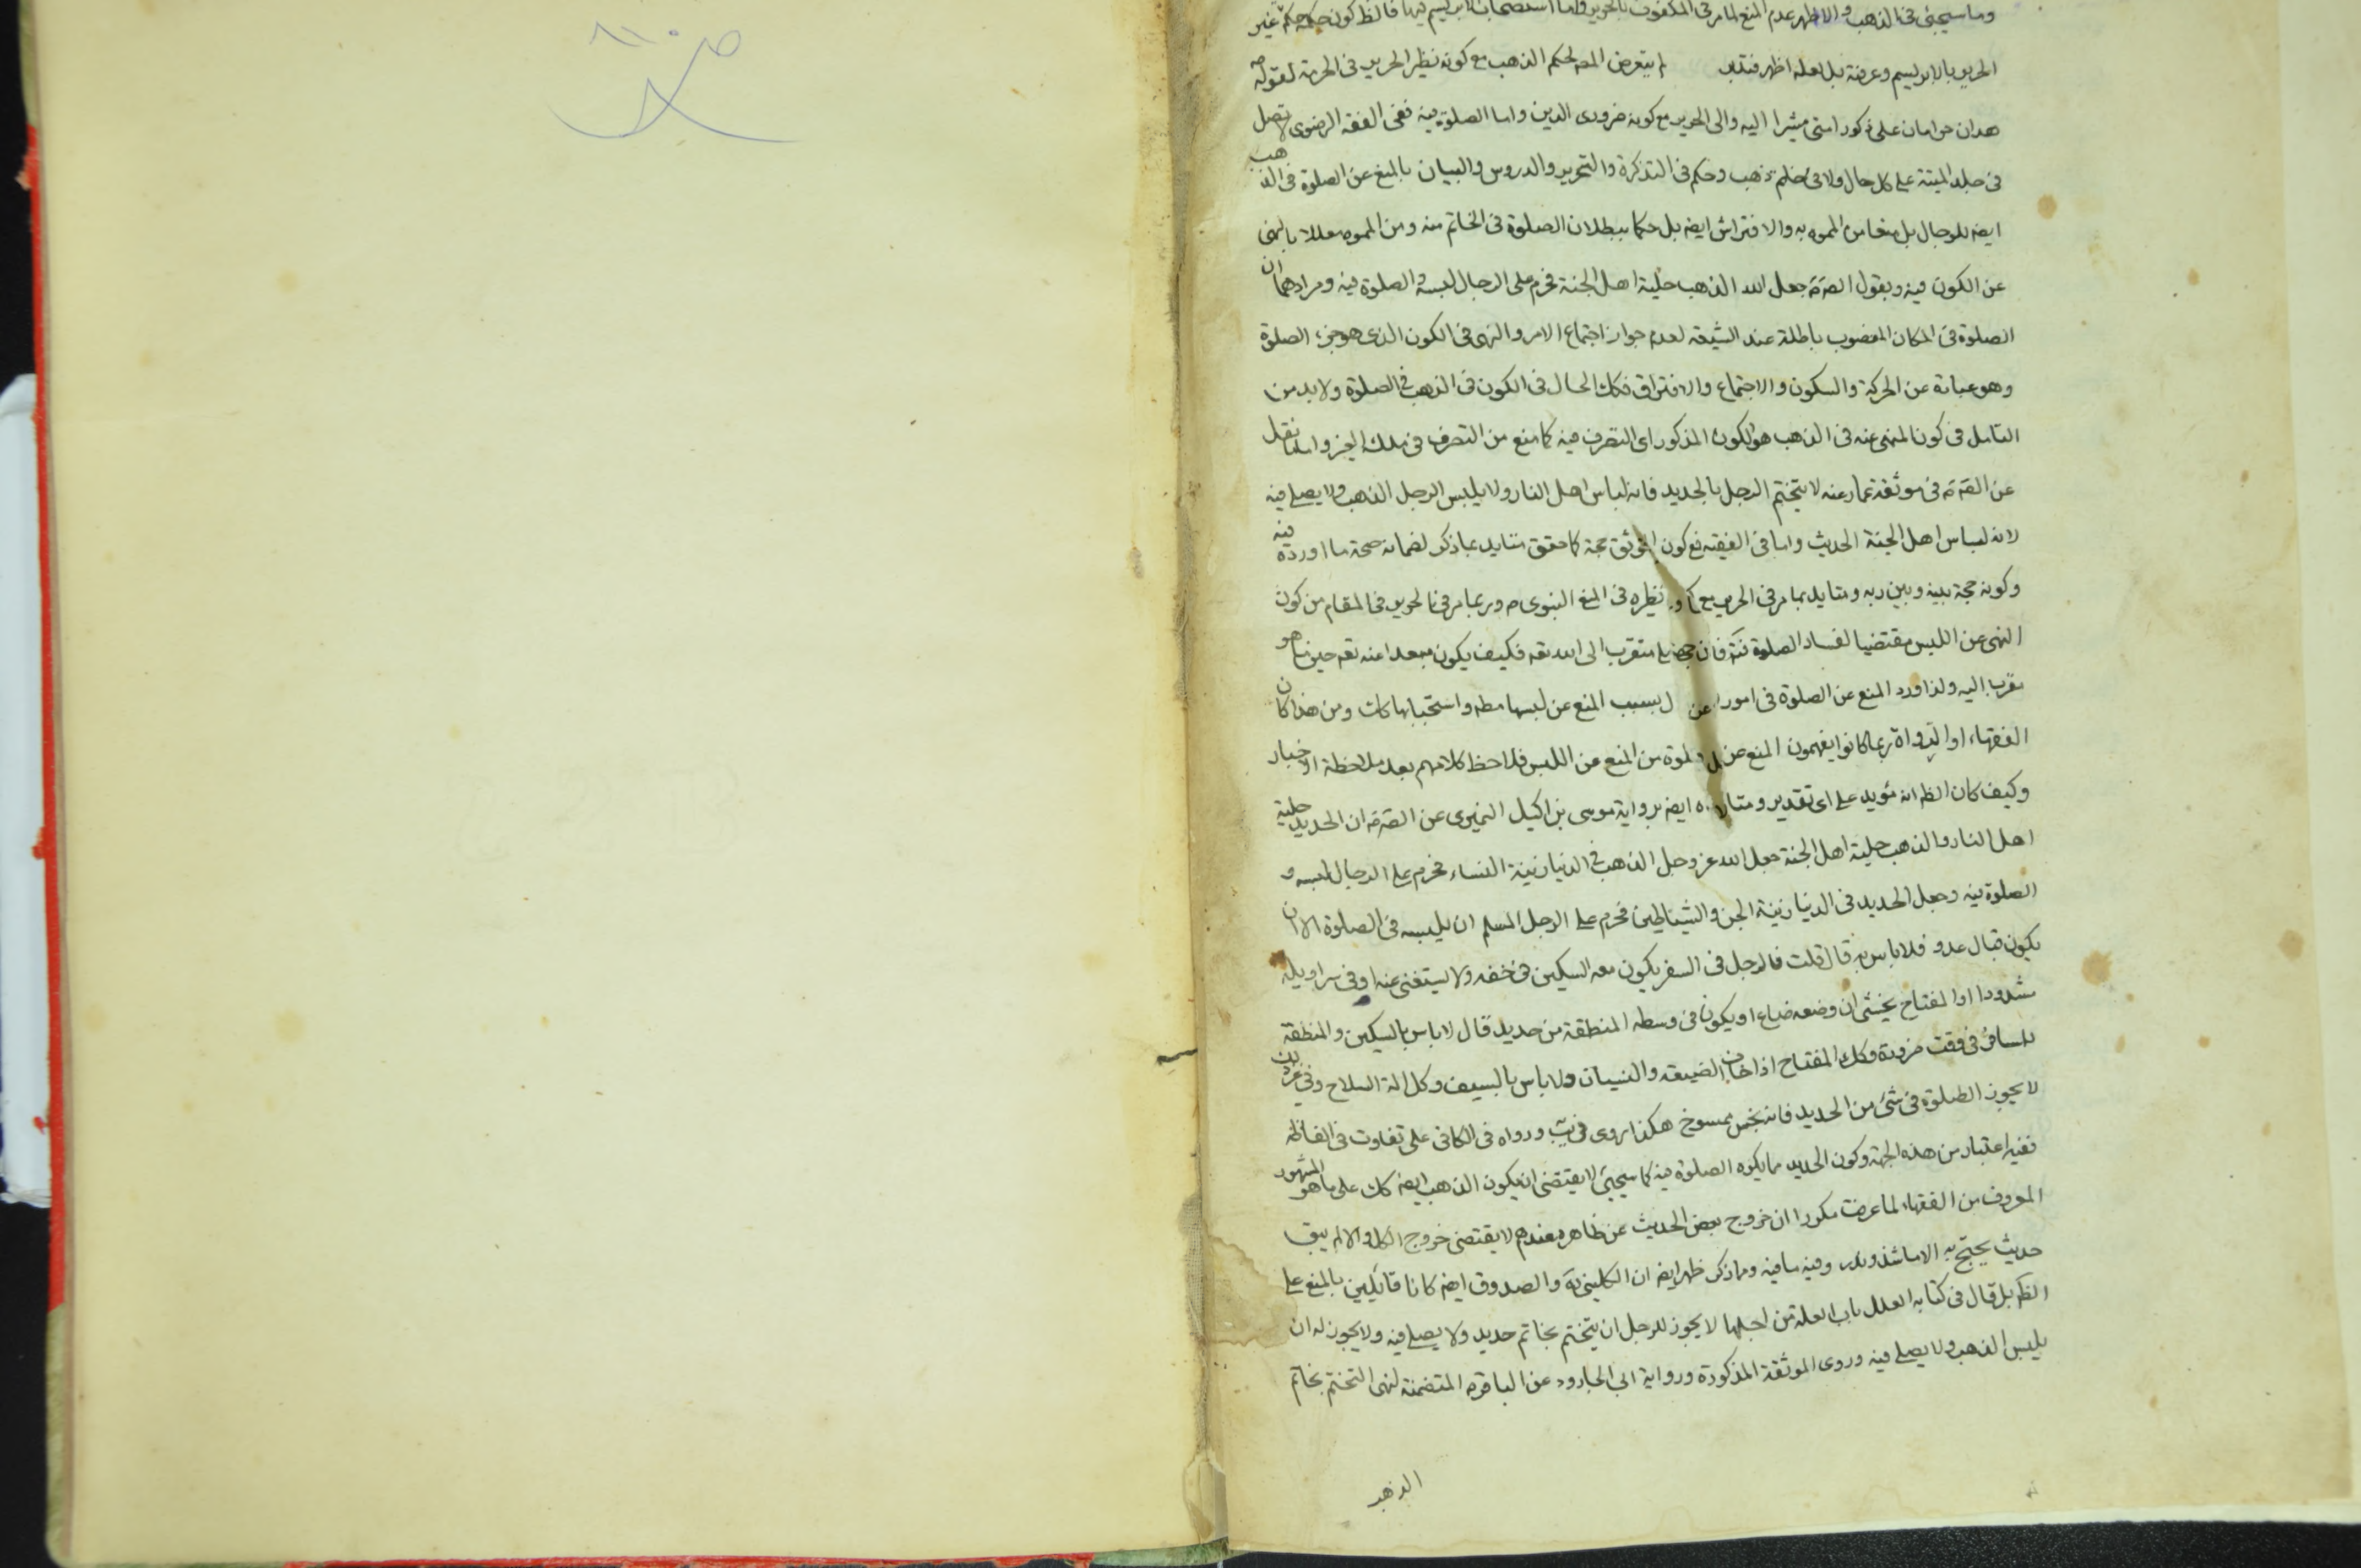 وما سيجئ في الذهب والاظهر عدم المنع لما مر في المكفوف بالحرير واما استصحاب الابريسم فيها فالظ كون حكمه حكم غير
الحرير بالابريسم وعرفته بل لعله اظهر فتدبر لم يتعرض المص لحكم الذهب مع كونه نظير الحرير في الحرمة لقوله ص
هذان حرامان على ذكور امتى مشيرا اليه والى الحرير مع كونه ضرورى الدين واما الصلوة فيه ففى الفقه الرضوى لا تصل
في جلد الميتة على كل حال ولا في خاتم ذهب وحكم في التذكرة والتحرير والدروس والبيان بالمنع عن الصلوة في الذهب
ايضه للرجال بل منعا من المموه به والافتراش ايضه بل حكما ببطلان الصلوة في الخاتم منه ومن المموه معللا بالنهى
عن الكون فيه وبقول الصة جعل الله الذهب حلية اهل الجنة فحرم على الرجال لبسه والصلوة فيه ومرادهما ان
الصلوة في المكان المغصوب باطلة عند الشيعه لعدم جواز اجتماع الامر والنهى في الكون الذى هو جزء الصلوة
وهو عبارة عن الحركة والسكون والاجتماع والافتراق فكك الحال في الكون في الذهب في الصلوة ولا بد من
التامل في كون المنهى عنه في الذهب هو الكون المذكور اى التصرف فيه كما منع من التصرف في ملك الغير واما ما نقل
عن الصة في موثقة عمار عنه لا يتختم الرجل بالحديد فانه لباس اهل النار ولا يلبس الرجل الذهب ولا يصلى فيه
لانه لباس اهل الجنة الحديث واما في الفقيه فمع كون الموثق حجة كما حقق متايد بما ذكر لضمانه صحة ما اورده فيه
وكونه حجة بينه وبين ربه ومتايد بما مر في الحرير مع نظيره في المنع النبوى ص وربما مر في الحرير في المقام من كون
النهى عن اللبس مقتضيا لفساد الصلوة متقرب الى الله تعه فكيف يكون مبعدا عنه تعه حين ما هو
مقرب اليه ولذا ورد المنع عن الصلوة في امور بسبب المنع عن لبسها مطه واستحبابها كك ومن هذا كان
الفقهاء او الرواة ربما كانوا يفهمون المنع عن الصلوة من المنع عن اللبس فلاحظ كلامهم بعد ملاحظة الاخبار
وكيف كان الظ انه مؤيد على اى تقدير ايضه برواية موسى بن اكيل النميرى عن الصة ان الحديد حلية
اهل النار والذهب حلية اهل الجنة جعل الله عز وجل الذهب في الدنيا زينة النساء فحرم على الرجال لبسه و
الصلوة فيه وجعل الحديد في الدنيا زينة الجن والشياطين فحرم على الرجل المسلم ان يلبسه في الصلوة الا ان
يكون قبال عدو فلا باس به قال قلت فالرجل في السفر يكون معه السكين في خفه ولا يستغنى عنه او في سراويله
مشدودا او المفتاح يخشى ان وضعه ضاع او يكون في وسطه المنطقة من حديد قال لا باس بالسكين والمنطقة
للمسافر في وقت ضرورة وكك المفتاح اذا خاف الضيعه والنسيان ولا باس بالسيف وكل الة السلاح وفي غير ذلك
لا يجوز الصلوة في شئ من الحديد فانه نجس ممسوخ هكذا روى في يب ورواه في الكافى على تفاوت في الفاظه
ففيه اعتبار من هذه الجهة وكون الحديد مما يكره الصلوة فيه كما سيجئ لا يقتضى ان يكون الذهب ايضه كك على ما هو المشهور
المعروف من الفقهاء لما عرفت مكررا ان خروج بعض الحديث عن ظاهره عندهم لا يقتضى خروج الكل والا لم يبق
حديث يحتج به الا ما شذ وندر وفيه ما فيه ومما ذكر ظهر ايضه ان الكلينى ره والصدوق ايضه كانا قائلين بالمنع على
الظ بل قال في كتابه العلل باب العلة من اجلها لا يجوز للرجل ان يتختم بخاتم حديد ولا يصلى فيه ولا يجوز له ان
يلبس الذهب ولا يصلى فيه وروى الموثقة المذكورة ورواية ابى الجارود عن الباقر ع المتضمنة لنهى التختم بخاتم
الذهب